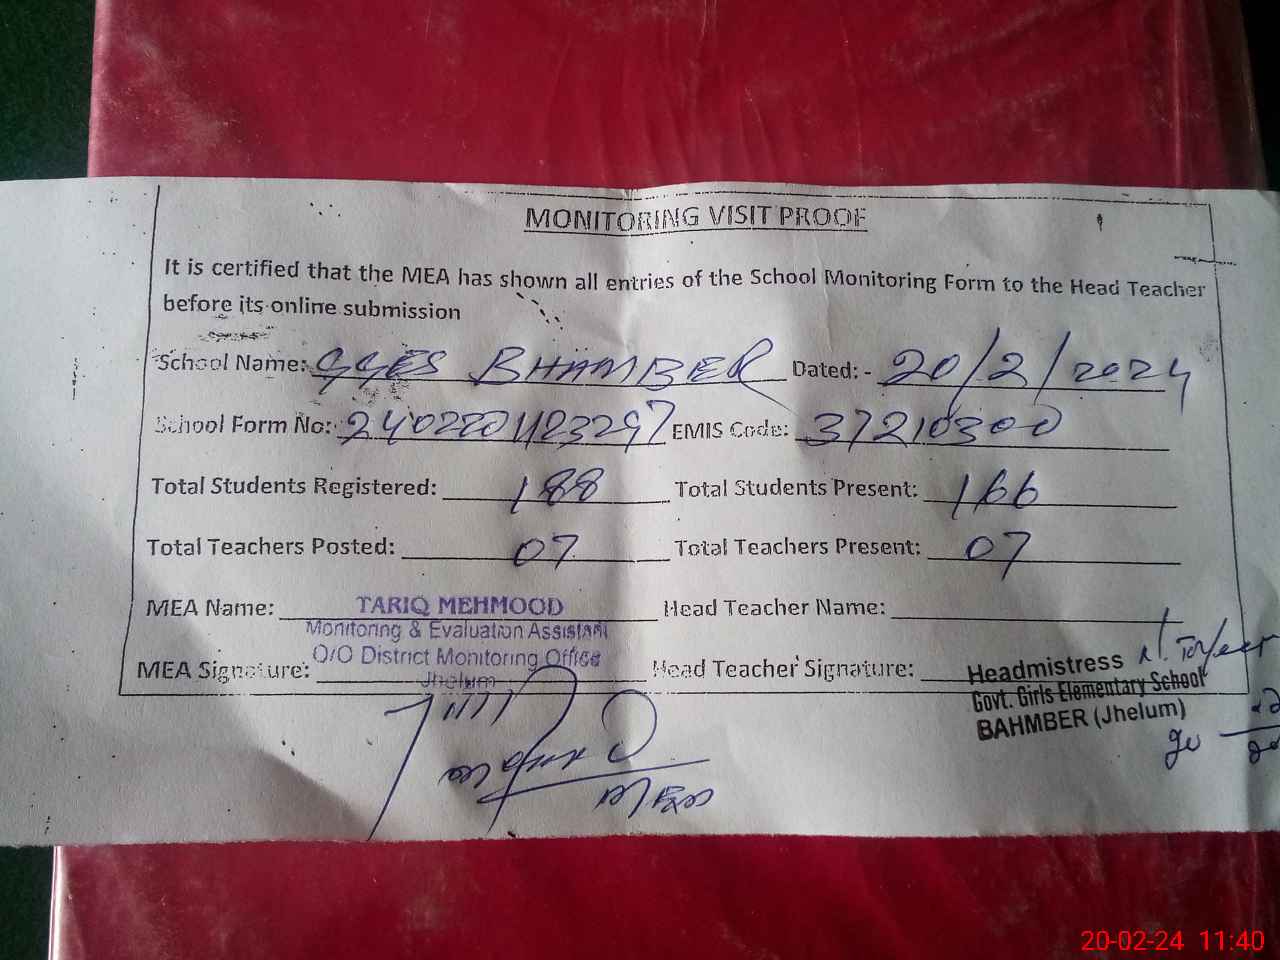 MONITORING VISIT PROOF
It is certified that the MEA has shown all entries of the School Monitoring Form to the Head Teacher
before its online submission
School Name: GGES BHAMBER Dated: - 20/2/2024
School Form No: EMIS Code: 37210300
Total Students Registered: 188 Total Students Present: 166
Total Teachers Posted: 07 Total Teachers Present: 07
MEA Name: TARIQ MEHMOOD Head Teacher Name:
Monitoring & Evaluation Assistant
O/O District Monitoring Office
Jhelum
MEA Signature: Head Teacher Signature:
Headmistress
Govt. Girls Elementary School
BAHMBER (Jhelum)
20-02-24 11:40